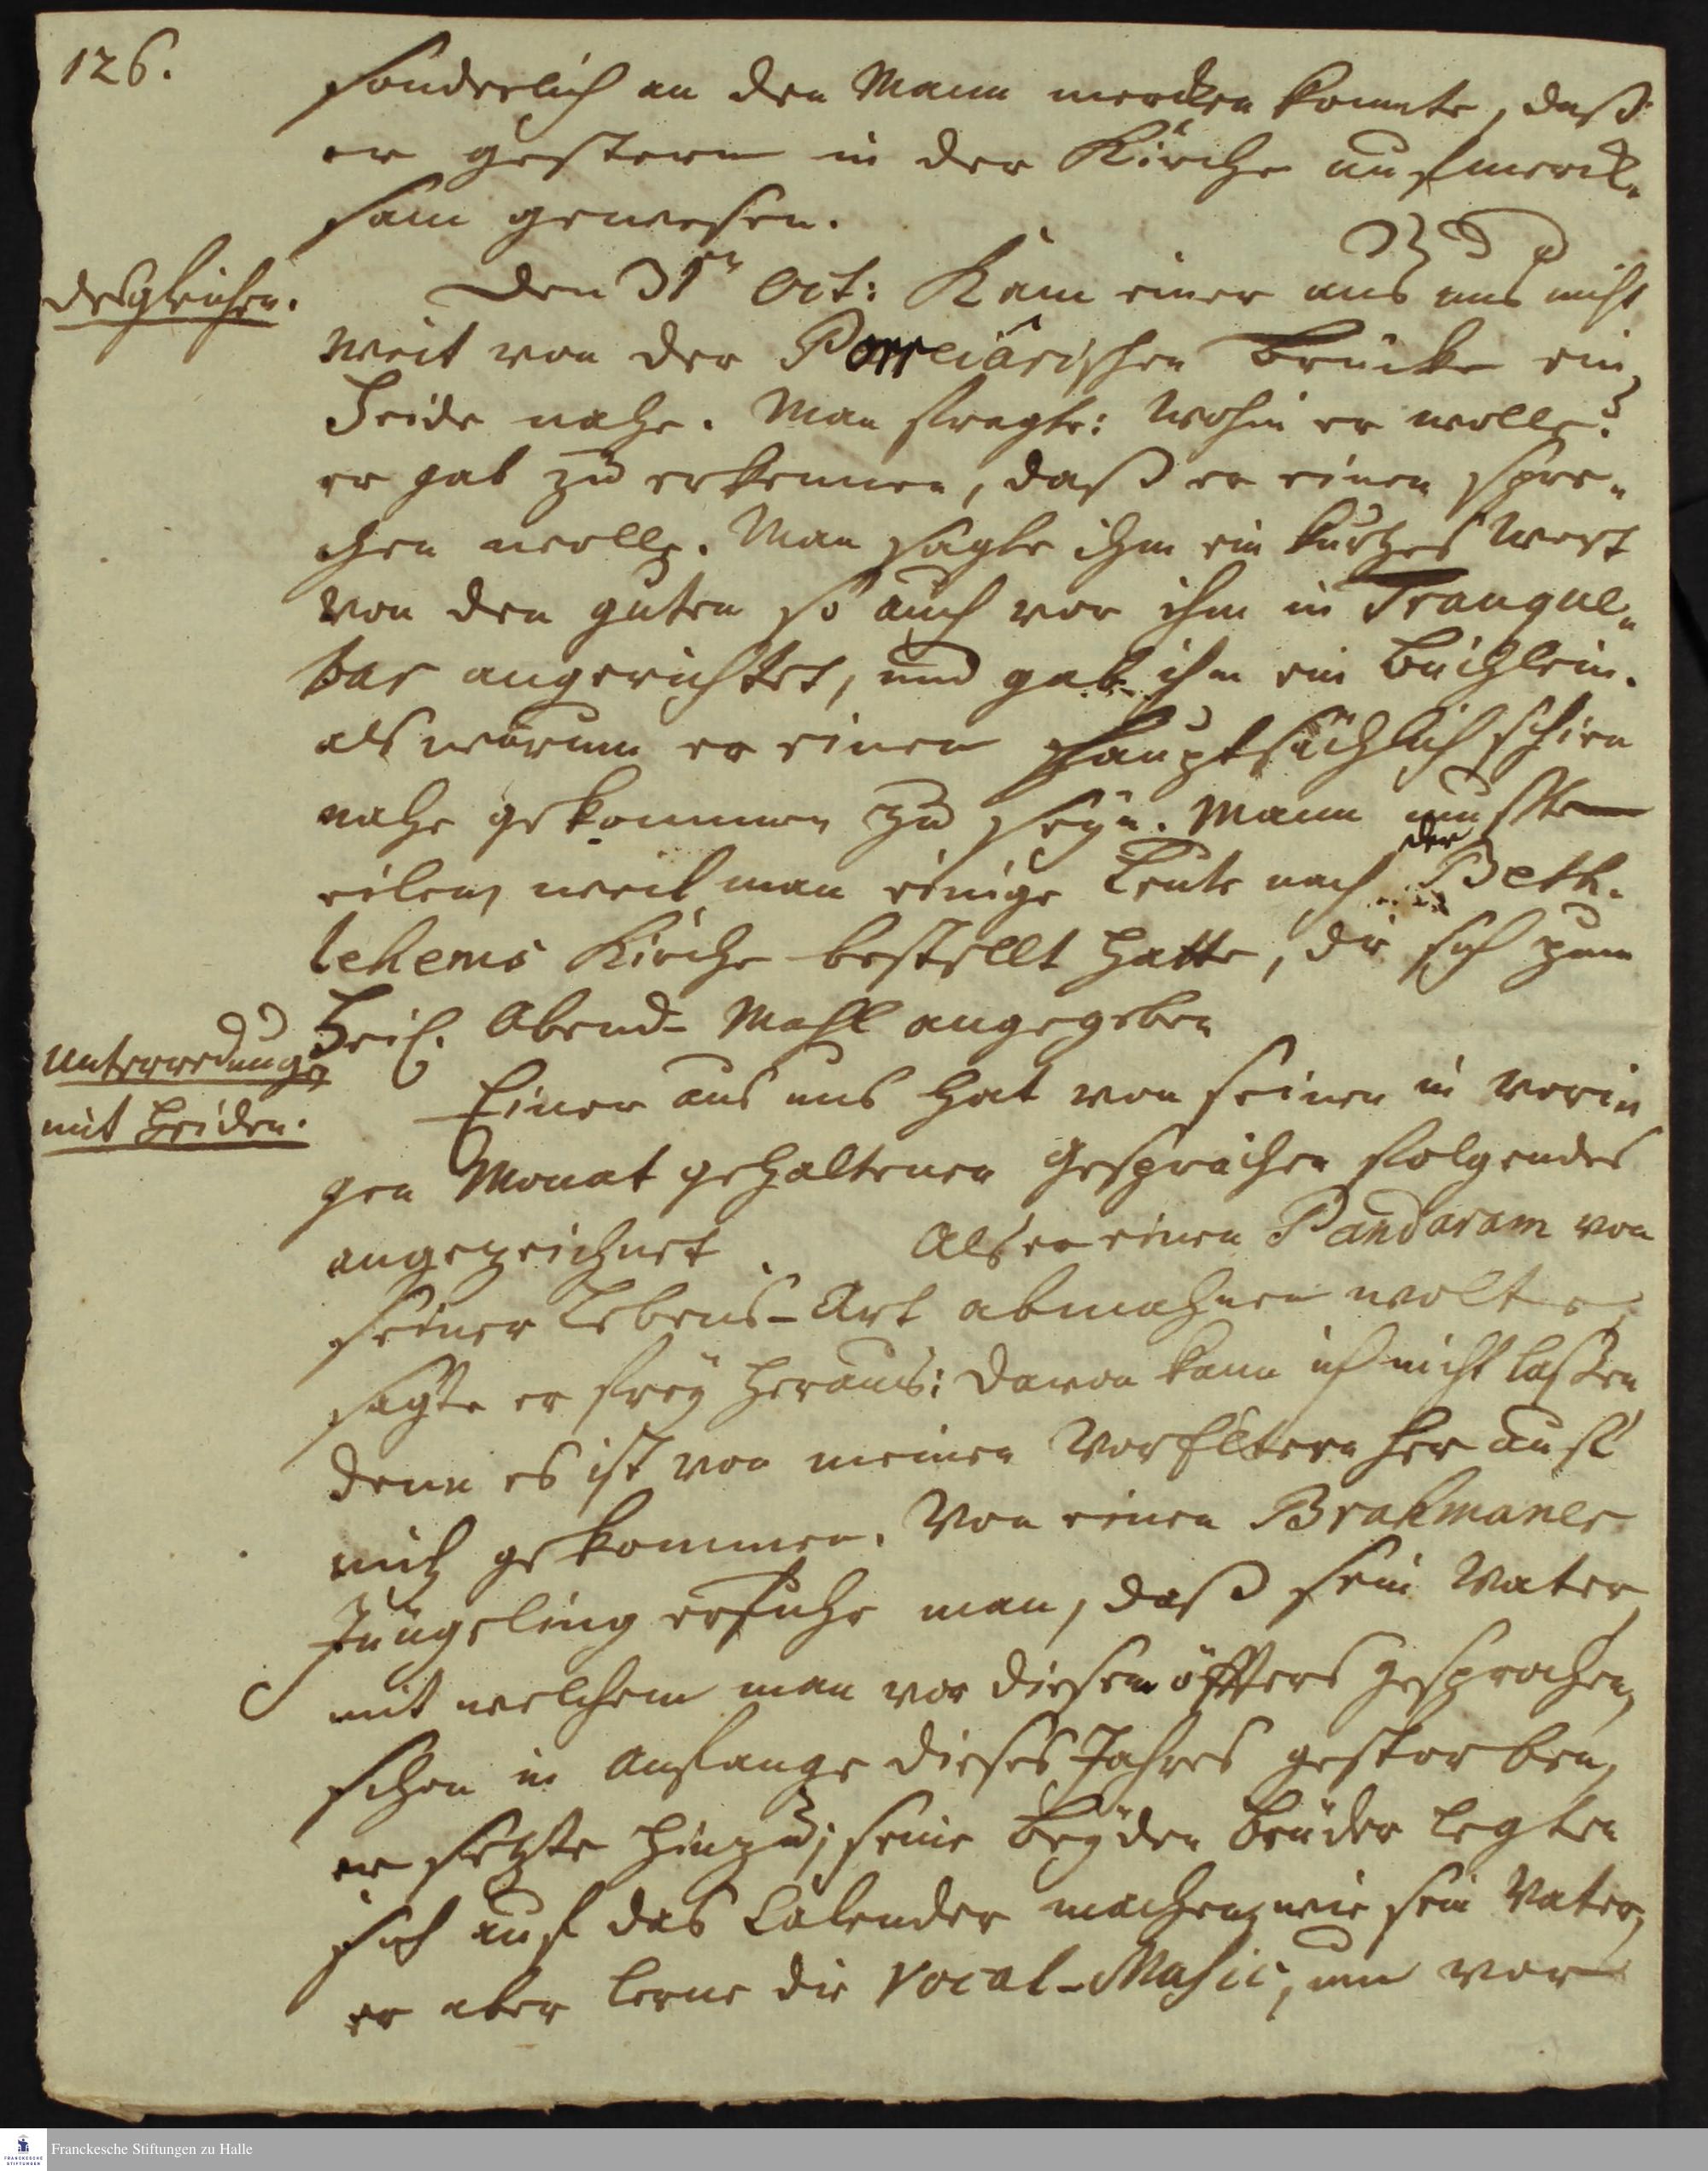 126.
sonderlich an den Mann mercken konnte, daß
er gestern in der Kirche aufmerck-
sam gewesen.
desgleichen.
Den 31ten Oct: Kam einer aus uns nicht
weit von der Porreiarischen Brücke ein
Heide nahe. Man fragte: Wohin er wolle?
er gab zu erkennen, daß er einen spre-
chen wolle. Man sagte ihm ein kurtzes Wort
von den guten so auch vor ihm in Tranque-
bar angerichtet, und gab ihm ein Büchlein.
als warum er einen hauptsächlich schien
nahe gekommen zu seyn. Mann muste
eilen, weil man einige Leute nach der Beth-
lehems Kirche bestellt hatte, die sich zum
Heil. Abend-Mahl angegeben
Unterredungen
mit Heiden.
Einer aus uns hat von seinen in vori-
gen Monat gehaltenen Gesprächen folgendes
angezeichnet. Als er einen Pandaram von
seiner Lebens-Art abmahnen wolte,
sagte er frey heraus: Davon kann ich nicht laßen
denn es ist von meinen VorEltern her auf
mich gekommen. Von einen Brahmaner
Jüngeling erfuhr man, daß sein Vater,
mit welchem man vor diesem öffters gesprochen,
schon in Anfange dieses Jahres gestorben,
er setzte hinzu; seine beyden Brüder legten
sich auf das Calender machen, wie sein Vater,
er aber lerne die Vocal-Music, um vor
Franckesche Stiftungen zu Halle
FRANCKESCHE
STIFTUNGEN